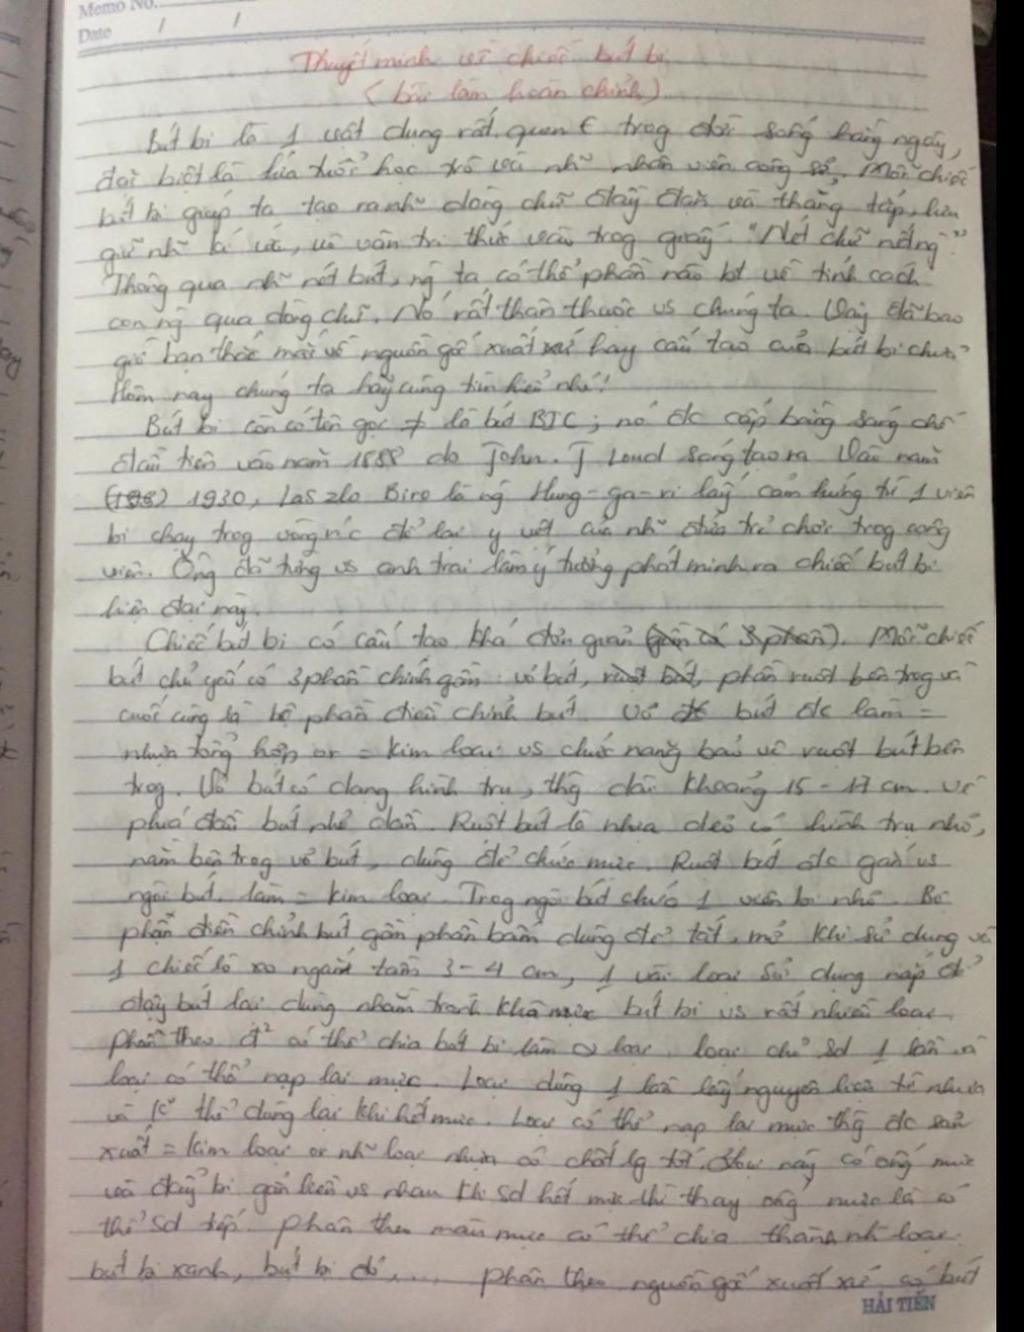 Memo No.
Date / /
Thuyết minh về chiếc bút bi
(bài làm hoàn chỉnh)
Bút bi là 1 vật dụng rất quen € trog đời sống hằng ngày,
đặc biệt là lứa tuổi học trò và nh~ nhân viên công sở. Mỗi chiếc
bút bi giúp ta tạo ra nh~ dòng chữ đầy đặn và thẳng tắp, lưu
giữ nh~ kí ức, về vấn tri thức vào trog giấy. "Nét chữ nết ng`"
Thông qua nh~ nét bút, ng` ta có thể phần nào bt về tính cách
con ng` qua dòng chữ. Nó rất thân thuộc vs chúng ta. Vậy đã bao
giờ bạn thắc mắc về nguồn gốc xuất xứ hay cấu tạo của bút bi chưa?
Hôm nay chúng ta hãy cùng tìm hiểu nhé!
Bút bi còn có tên gọi ≠ là bút BIC; nó đc cấp bằng sáng chế
đầu tiên vào năm 1888 do John. J Loud sáng tạo ra. Vào năm
1930, Las zlo Biro là ng` Hung-ga-ri lấy cảm hứng từ 1 viên
bi chạy trog vũng nc để lại y vệt của nh~ đứa trẻ chơi trog công
viên. Ông đã từng vs anh trai làm ý tưởng phát minh ra chiếc bút bi
hiện đại này.
Chiếc bút bi có cấu tạo khá đơn giản (gồm có 3 phần). Mỗi chiếc
bút chủ yếu có 3 phần chính gồm: vỏ bút, ruột bút, phần ruột bên trog và
cuối cùng là bộ phận điều chỉnh bút. Vỏ bút đc làm =
nhựa tổng hợp or = kim loại vs chức năng bảo vệ ruột bút bên
trog. Vỏ bút có dạng hình trụ, thg dài khoảng 15 - 17 cm. Về
phía đầu bút nhỏ dần. Ruột bút là nhựa dẻo có hình trụ nhỏ,
nằm bên trog vỏ bút, dùng để chứa mực. Ruột bút đc gắn vs
ngòi bút làm = kim loại. Trog ngòi bút chứa 1 viên bi nhỏ. Bộ
phận điều chỉnh bút gồm phần bấm dùng để tắt, mở khi sử dụng và
1 chiếc lò xo ngắn tầm 3-4 cm, 1 vài loại sử dụng nắp để
đậy bút lại dùng nhằm tránh khô mực. bút bi vs rất nhiều loại.
Phân theo đ² có thể chia bút bi làm 2 loại. loại chỉ sd 1 lần và
loại có thể nạp lại mực. Loại dùng 1 lần lấy nguyên liệu từ nhựa
và k° thể dùng lại khi hết mực. Loại có thể nạp lại mực thg đc sản
xuất = kim loại or nh~ loại nhựa có chất lg tốt. này có ống mực
và đẩy bi gắn liền vs nhau khi sd hết mực thì thay ống mực là có
thể sd tiếp. Phân theo màu mực có thể chia thành nh` loại:
bút bi xanh, bút bi đỏ,.... phân theo nguồn gốc xuất xứ có bút
HẢI TIẾN